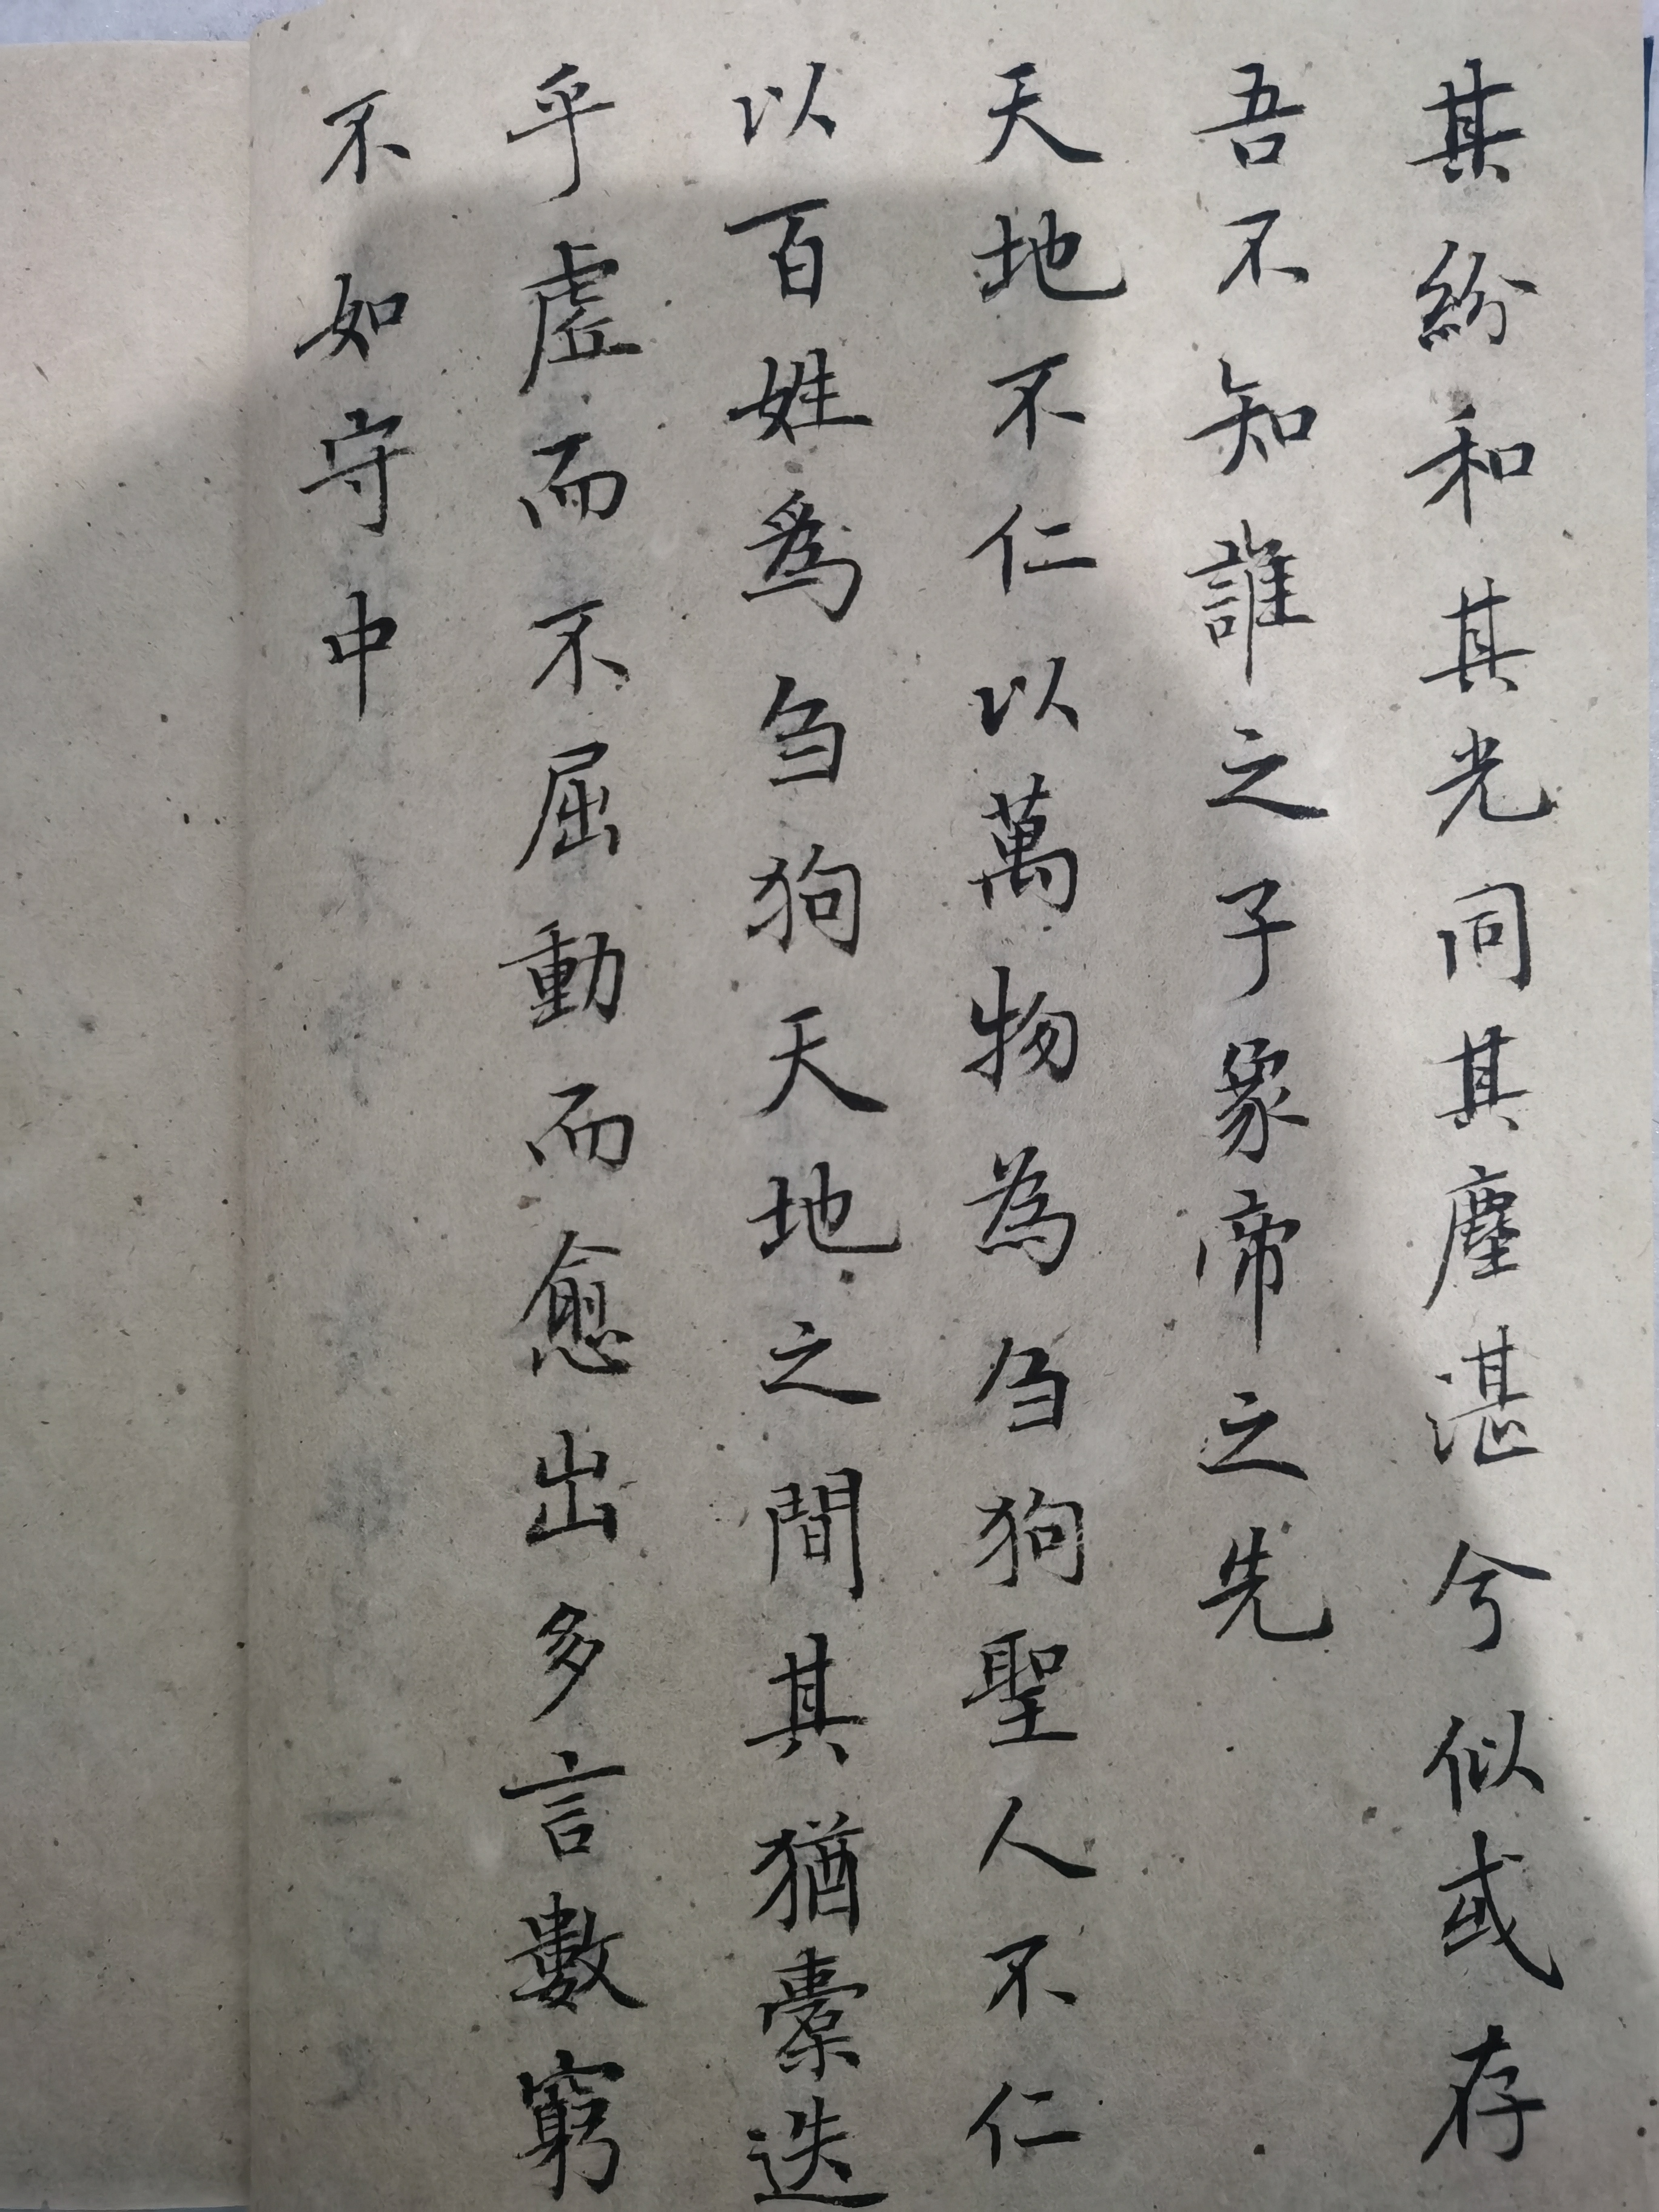 其紛和其光同其塵湛兮似或存
吾不知誰之子象帝之先
天地不仁以萬物為刍狗聖人不仁
以百姓爲刍狗天地之間其猶橐迭
乎虛而不屈動而愈出多言數窮
不如守中